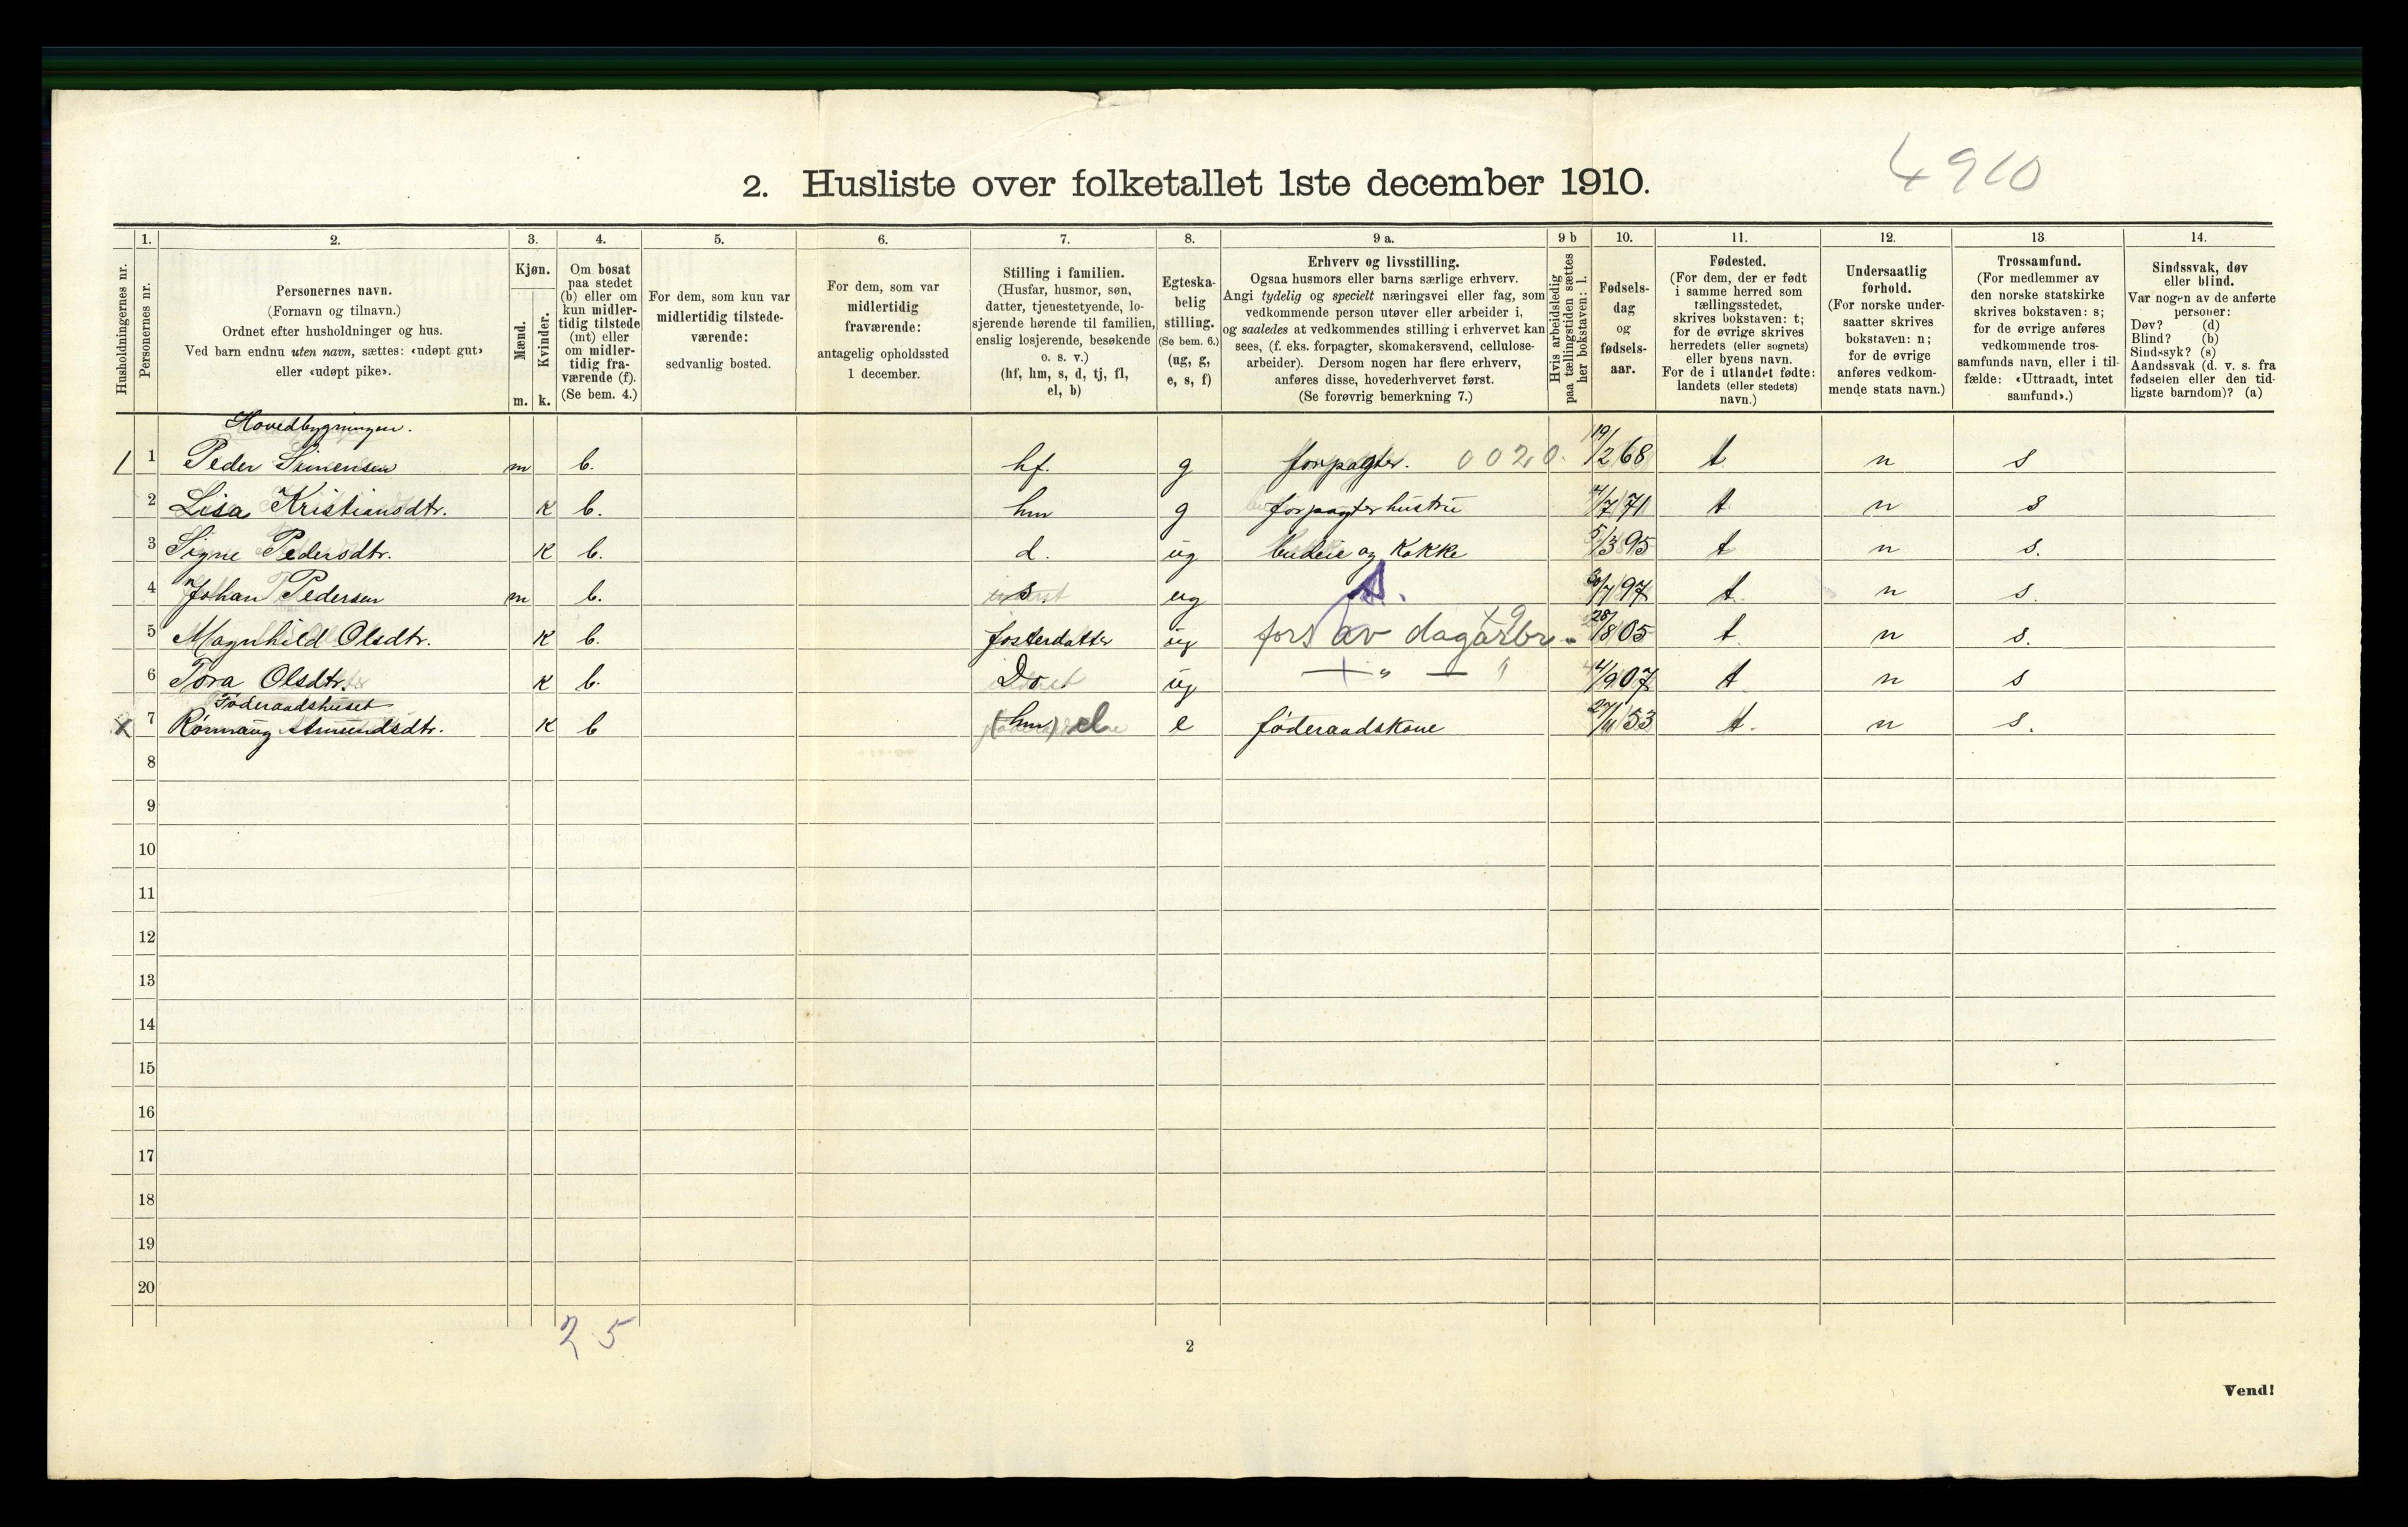 4910
2. Husliste over folketallet 1ste december 1910.
Husholdningernes nr.
1. Personernes nr.
2. Personernes navn.
(Fornavn og tilnavn.)
Ordnet efter husholdninger og hus.
Ved barn endnu uten navn, sættes: «udøpt gut»
eller «udøpt pike».
3. Kjøn.
Mænd. m.
Kvinder. k.
4. Om bosat
paa stedet
(b) eller om
kun midler-
tidig tilstede
(mt) eller
om midler-
tidig fra-
værende (f).
(Se bem. 4.)
5. For dem, som kun var
midlertidig tilstede-
værende:
sedvanlig bosted.
6. For dem, som var
midlertidig
fraværende:
antagelig opholdssted
1 december.
7. Stilling i familien.
(Husfar, husmor, søn,
datter, tjenestetyende, lo-
sjerende hørende til familien,
enslig losjerende, besøkende
o. s. v.)
(hf, hm, s, d, tj, fl,
el, b)
8. Egteska-
belig
stilling.
(Se bem. 6.)
(ug, g,
e, s, f)
9 a. Erhverv og livsstilling.
Ogsaa husmors eller barns særlige erhverv.
Angi tydelig og specielt næringsvei eller fag, som
vedkommende person utøver eller arbeider i,
og saaledes at vedkommendes stilling i erhvervet kan
sees, (f. eks. forpagter, skomakersvend, cellulose-
arbeider). Dersom nogen har flere erhverv,
anføres disse, hovederhvervet først.
(Se forøvrig bemerkning 7.)
9 b Hvis arbeidsledig
paa tællingstiden sættes
her bokstaven: l.
10. Fødsels-
dag
og
fødsels-
aar.
11. Fødested.
(For dem, der er født
i samme herred som
tællingsstedet,
skrives bokstaven: t;
for de øvrige skrives
herredets (eller sognets)
eller byens navn.
For de i utlandet fødte:
landets (eller stedets)
navn.)
12. Undersaatlig
forhold.
(For norske under-
saatter skrives
bokstaven: n;
for de øvrige
anføres vedkom-
mende stats navn.)
13 Trossamfund.
(For medlemmer av
den norske statskirke
skrives bokstaven: s;
for de øvrige anføres
vedkommende tros-
samfunds navn, eller i til-
fælde: «Uttraadt, intet
samfund».)
14. Sindssvak, døv
eller blind.
Var nogen av de anførte
personer:
Døv? (d)
Blind? (b)
Sindssyk? (s)
Aandssvak (d. v. s. fra
fødselen eller den tid-
ligste barndom)? (a)
Hovedbygningen.
1 1 Peder Simensen m b. hf. g forpagter. 0020. 19/2 68 t n s
2 Lisa Kristiansdtr. K b. hm g forpagterhustru 4/7 71 t n s
3 Signe Pedersdtr. K b. d. ug budeie og Kokke 5/3 95 t n s.
4 Johan Pedersen m b. s ug 30/7 97 t. n s.
5 Magnhild Olsdtr. K b. fosterdatter ug fors av dagarbr. x9 28/8 05 t. n s.
6 Tora Olsdtr. K b. Do ug — " — " 4/9 07 t n s
Føderaadshuset
x 7 Rønnaug Amundsdtr. K b (hm) el e føderaadskone 27/11 53 t. n s.
8
9
10
11
12
13
14
15
16
17
18
19
20
2 5
2
Vend!